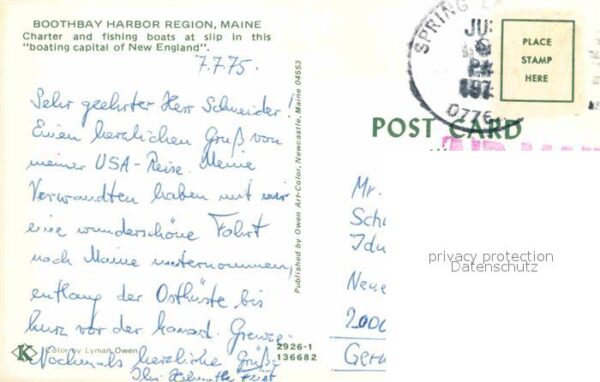 BOOTHBAY HARBOR REGION, MAINE
Charter and fishing boats at slip in this
"boating capital of New England".
7.7.75.
Sehr geehrter Herr Schneider!
Einen herzlichen Gruß von
meiner USA-Reise. Meine
Verwandten haben mit mir
eine wunderschöne Fahrt
nach Maine unternommen,
entlang der Ostküste bis
kurz vor der kanad. Grenze.
Nochmals herzliche Grüße
Ihr
K
Color by Lyman Owen
2926-1
136682
Published by Owen Art-Color, Newcastle, Maine 04553
SPRING
JU
9
PM
197
0776
PLACE
STAMP
HERE
POST CARD
AIR MAIL
Mr.
Sch
Idu
Neue
2000
Germ
privacy protection
Datenschutz